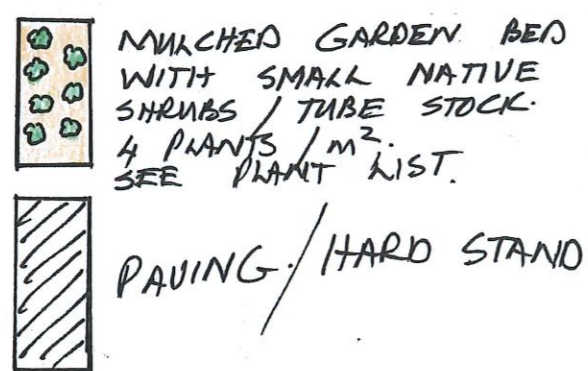 MULCHED GARDEN BED
WITH SMALL NATIVE
SHRUBS / TUBE STOCK.
4 PLANTS / m².
SEE PLANT LIST.
PAVING / HARD STAND